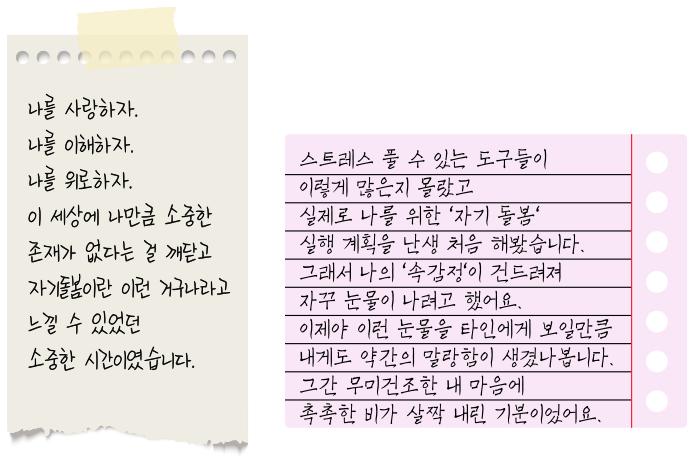 나를 사랑하자.
나를 이해하자.
나를 위로하자.
이 세상에 나만큼 소중한
존재가 없다는 걸 깨닫고
자기돌봄이란 이런 거구나라고
느낄 수 있었던
소중한 시간이였습니다.
스트레스 풀 수 있는 도구들이
이렇게 많은지 몰랐고
실제로 나를 위한 '자기 돌봄'
실행 계획을 난생 처음 해봤습니다.
그래서 나의 '속감정'이 건드려져
자꾸 눈물이 나려고 했어요.
이제야 이런 눈물을 타인에게 보일만큼
내게도 약간의 말랑함이 생겼나봅니다.
그간 무미건조한 내 마음에
촉촉한 비가 살짝 내린 기분이었어요.